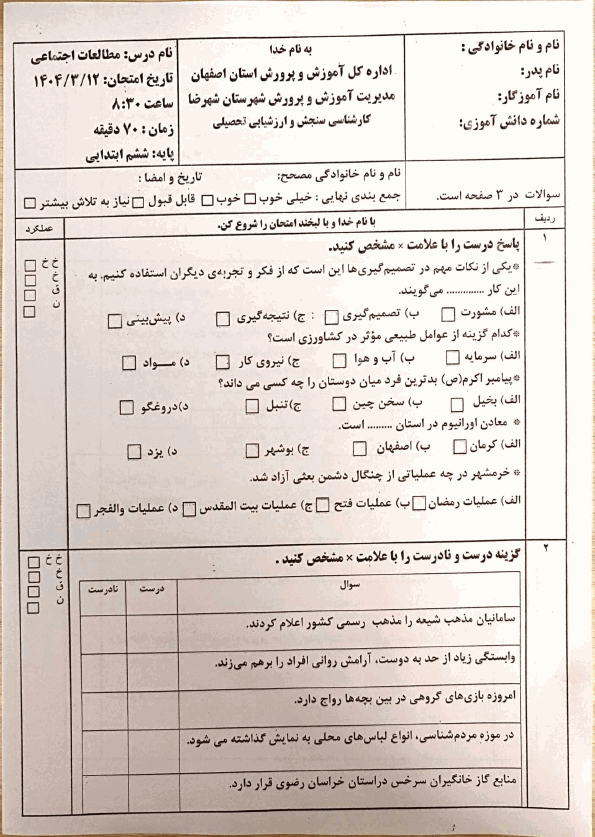 به نام خدا
نام و نام خانوادگی :
نام پدر:
نام آموزگار:
شماره دانش آموزی:
اداره کل آموزش و پرورش استان اصفهان
مدیریت آموزش و پرورش شهرستان شهرضا
کارشناسی سنجش و ارزشیابی تحصیلی
نام درس: مطالعات اجتماعی
تاریخ امتحان: ۱۴۰۴/۳/۱۲
ساعت ۸:۳۰
زمان : ۷۰ دقیقه
پایه: ششم ابتدایی
سوالات در ۳ صفحه است.
نام و نام خانوادگی مصحح: تاریخ و امضا :
جمع بندی نهایی : خیلی خوب □ خوب □ قابل قبول □ نیاز به تلاش بیشتر □
ردیف
با نام خدا و با لبخند امتحان را شروع کن.
عملکرد
۱
پاسخ درست را با علامت × مشخص کنید.
*یکی از نکات مهم در تصمیم‌گیری‌ها این است که از فکر و تجربه‌ی دیگران استفاده کنیم. به
این کار .............. می‌گویند.
الف) مشورت □ ب) تصمیم‌گیری □ : ج) نتیجه‌گیری □ د) پیش‌بینی □
*کدام گزینه از عوامل طبیعی مؤثر در کشاورزی است؟
الف) سرمایه □ ب) آب و هوا □ ج) نیروی کار □ د) مـــواد □
*پیامبر اکرم(ص) بدترین فرد میان دوستان را چه کسی می داند؟
الف) بخیل □ ب) سخن چین □ ج)تنبل □ د)دروغگو □
* معادن اورانیوم در استان ......... است.
الف) کرمان □ ب) اصفهان □ ج) بوشهر □ د) یزد □
* خرمشهر در چه عملیاتی از چنگال دشمن بعثی آزاد شد.
الف) عملیات رمضان □ ب) عملیات فتح □ ج) عملیات بیت المقدس □ د) عملیات والفجر □
خ خ □
خ □
ق □
ن □
۲
گزینه درست و نادرست را با علامت × مشخص کنید .
سوال درست نادرست
سامانیان مذهب شیعه را مذهب رسمی کشور اعلام کردند.
وابستگی زیاد از حد به دوست، آرامش روانی افراد را برهم می‌زند.
امروزه بازی‌های گروهی در بین بچه‌ها رواج دارد.
در موزه مردم‌شناسی، انواع لباس‌های محلی به نمایش گذاشته می شود.
منابع گاز خانگیران سرخس دراستان خراسان رضوی قرار دارد.
خ خ □
خ □
ق □
ن □
۱